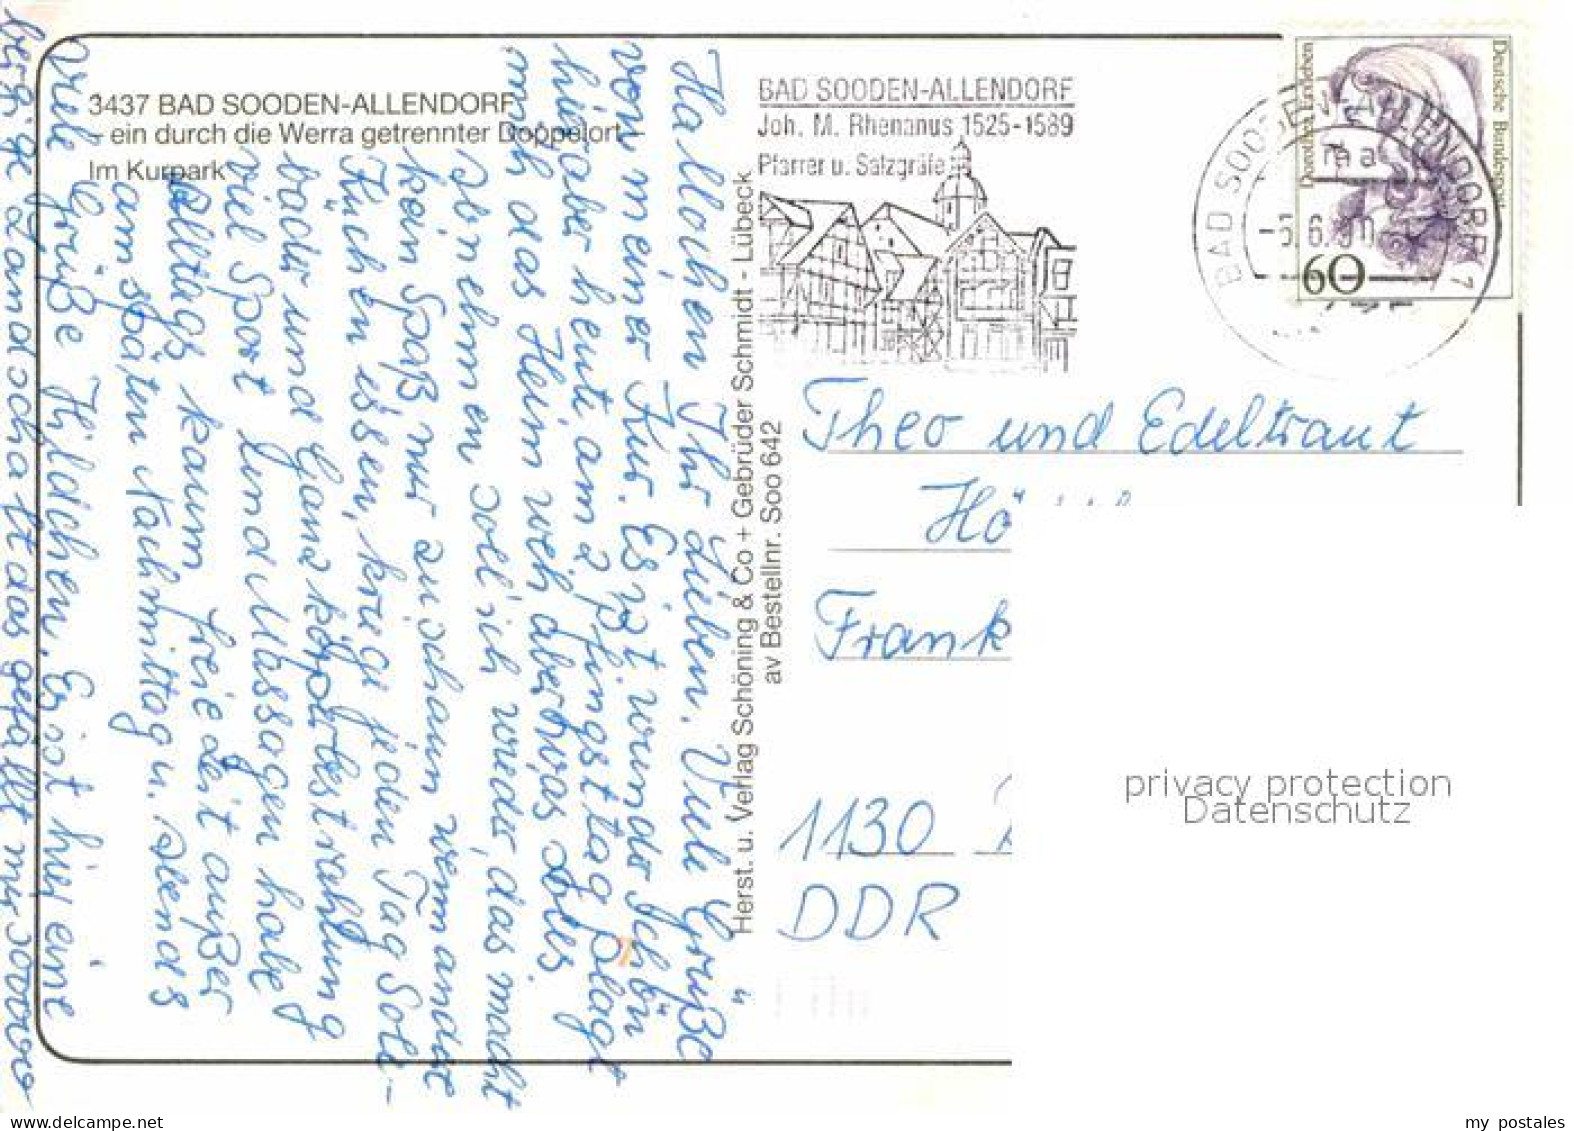 3437 BAD SOODEN-ALLENDORF
– ein durch die Werra getrennter Doppelort
Im Kurpark
Hallochen Ihr Lieben. Viele Grüße
von meiner Kur. Es ist wunderschön
hier aber heute am 2 Pfingsttag plagt
mich das Heimweh aber was soll's
abnehmen soll ich wieder, das macht
kein Spaß nur zuschaun wenn andere
Kuchen essen, kriege jeden Tag Sole-
bäder und Ganzkörperbestrahlung
viel Sport und Massagen habe
Alltags kaum Freizeit außer
am späten Nachmittag u. Abends
viele Grüße Hildchen. Es ist hier eine
bergige Landschaft das gefällt mir soooo
Herst. u. Verlag Schöning & Co + Gebrüder Schmidt - Lübeck
av Bestellnr. Soo 642
BAD SOODEN-ALLENDORF
Joh. M. Rhenanus 1525-1589
Pfarrer u. Salzgräfe
BAD SOODEN-ALLENDORF 1
ma
Dorothea Erxleben
Deutsche Bundespost
60
Theo und Edeltraut
Frank
1130
DDR
privacy protection
Datenschutz
my postales